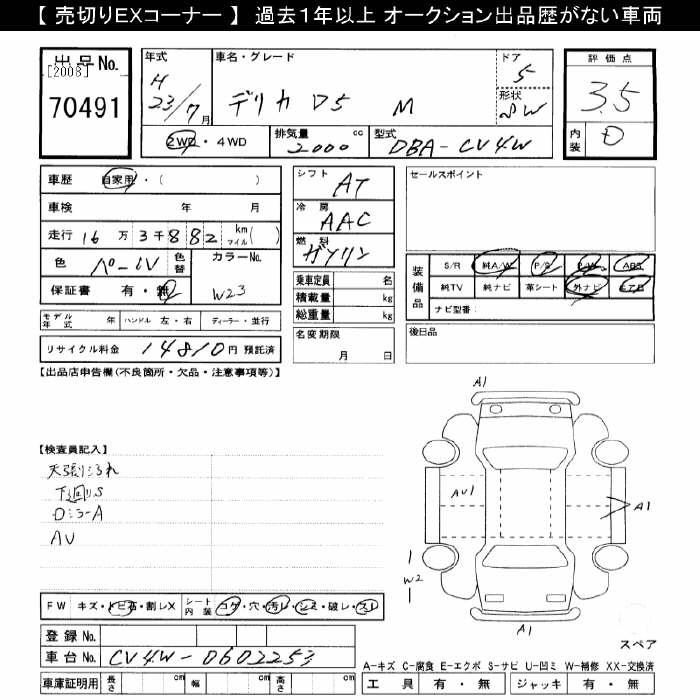 【 売切りEXコーナー 】 過去1年以上 オークション出品歴がない車両
出品 No.
[2008]
70491
年式
H
23/7月
車名・グレード
デリカ D5 M
ドア
5
形状
8W
評価点
3.5
内装 D
2WD・4WD
排気量 2000 cc
型式 DBA-CV4W
車歴 自家用・( )
車検 年 月
走行 16万3千882 km マイル( )
色 パール
色替
カラーNo.
W23
保証書 有・無
シフト AT
冷房 AAC
燃料 ガソリン
乗車定員 名
積載量 kg
総重量 kg
名変期限
月 日
セールスポイント
装備品
S/R 純A/W P/S P/W ABS
純TV 純ナビ 革シート 外ナビ エアB
ナビ型番:
後日品
モデル年式 年 ハンドル 左・右 ディーラー・並行
リサイクル料金 14810円 預託済
【出品店申告欄(不良箇所・欠品・注意事項等)】
【検査員記入】
天張ヨゴレ
下廻りS
DミラーA
AV
A1
AU1
A1
W2
A1
FW キズ・トビ石・割レX
シート内装 コゲ・穴・汚レ・シミ・破レ・スレ
登録 No.
車台 No. CV4W-0602253
車庫証明用 長さ cm 幅 cm 高さ cm
スペア
A-キズ C-腐食 E-エクボ S-サビ U-凹ミ W-補修 XX-交換済
工具 有・無 ジャッキ 有・無